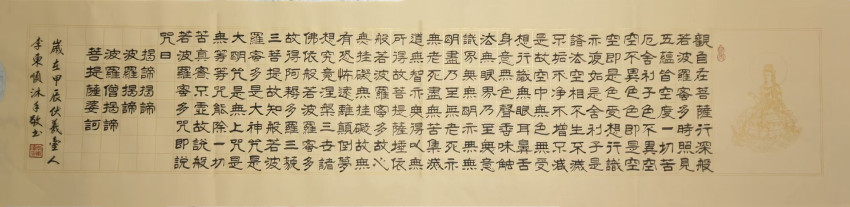 觀自在菩薩行深般
若波羅蜜多時照見
五蘊皆空度一切苦
厄舍利子色不異空
空不異色色即是空
空即是色受想行識
亦復如是舍利子是
諸法空相不生不滅
不垢不淨不增不減
是故空中無色無受
想行識無眼耳鼻舌
身意無色聲香味觸
法無眼界乃至無意
識界無無明亦無無
明盡乃至無老死亦
無老死盡無苦集滅
道無智亦無得以無
所得故菩提薩埵依
般若波羅蜜多故心
無挂礙無挂礙故無
有恐怖遠離顛倒夢
想究竟涅槃三世諸
佛依般若波羅蜜多
故得阿耨多羅三藐
三菩提故知般若波
羅蜜多是大神咒是
大明咒是無上咒是
無等等咒能除一切
苦真實不虛故說般
若波羅蜜多咒即說
咒曰
揭諦揭諦
波羅揭諦
波羅僧揭諦
菩提薩婆訶
歲在甲辰伏羲臺人
李東沐手敬書